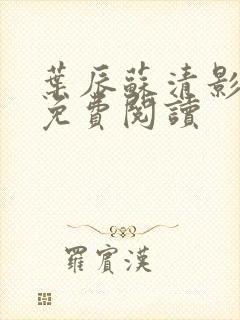 葉辰蘇清影
免費閱讀
羅賓漢